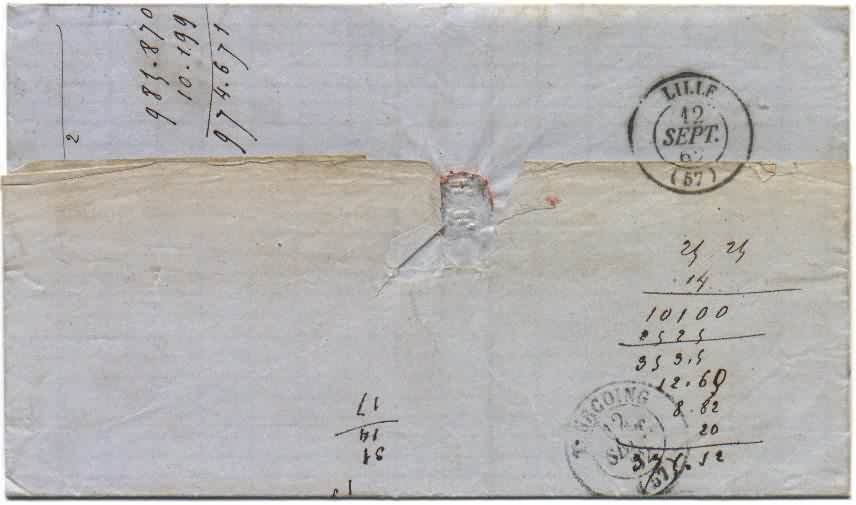 984.870
10.199
974.671
2
LILLE
12
SEPT.
62
(57)
25 25
14
10100
2525
353.5
12.60
8.82
20
375.12
COING
12
(57)
31
14
17